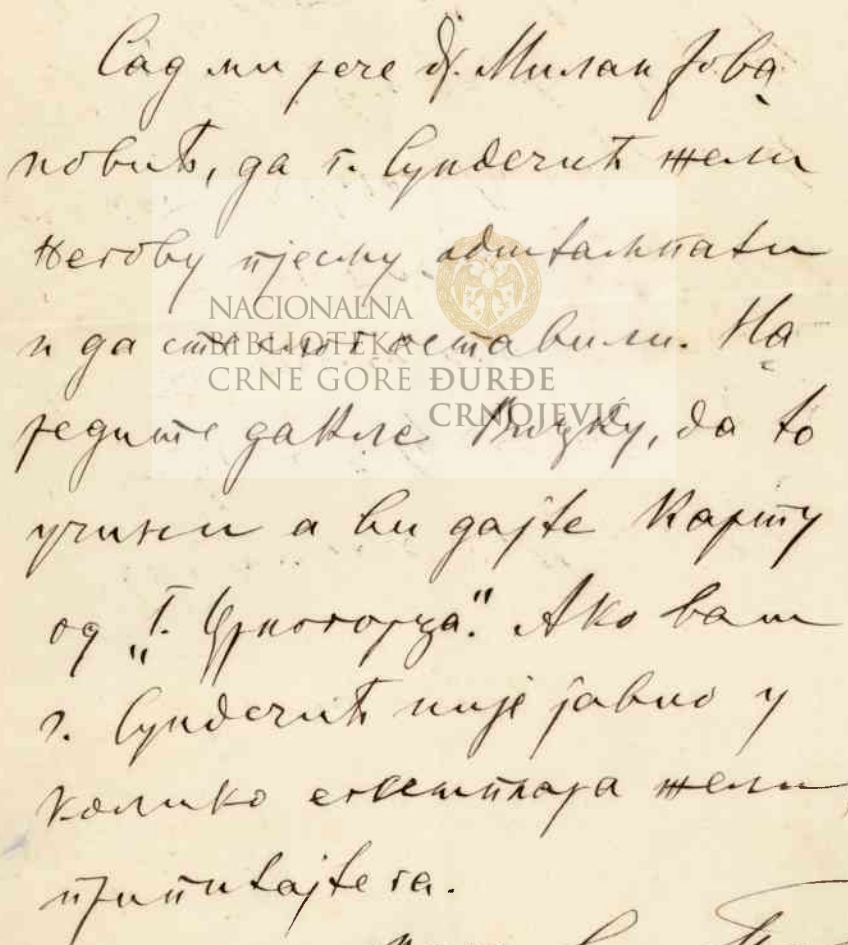 Сад ми рече Др. Милан Јова
новић, да г. Сундечић жели
његову пјесму одштампати
и да сте слог оставили. На
редите дакле Вицку, да то
учини а ви дајте карту
од „Г. Црногорца“. Ако вам
г. Сундечић није јавио у
колико егземплара жели,
припитајте га.
NACIONALNA
BIBLIOTEKA
CRNE GORE ĐURĐE
CRNOJEVIĆ